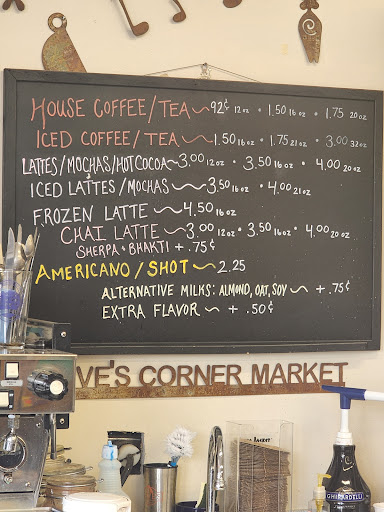 HOUSE COFFEE/TEA~92¢ 12oz • 1.50 16oz • 1.75 20oz
ICED COFFEE/TEA~1.50 16oz • 1.75 21oz • 3.00 32oz
LATTES/MOCHAS/HOT COCOA~3.00 12oz • 3.50 16oz • 4.00 20oz
ICED LATTES/MOCHAS~3.50 16oz • 4.00 21oz
FROZEN LATTE~4.50 16oz
CHAI LATTE~3.00 12oz • 3.50 16oz • 4.00 20oz
SHERPA & BHAKTI +.75¢
AMERICANO/SHOT~2.25
ALTERNATIVE MILKS: ALMOND, OAT, SOY ~ +.75¢
EXTRA FLAVOR ~ +.50¢
VE'S CORNER MARKET
GHIRARDELLI